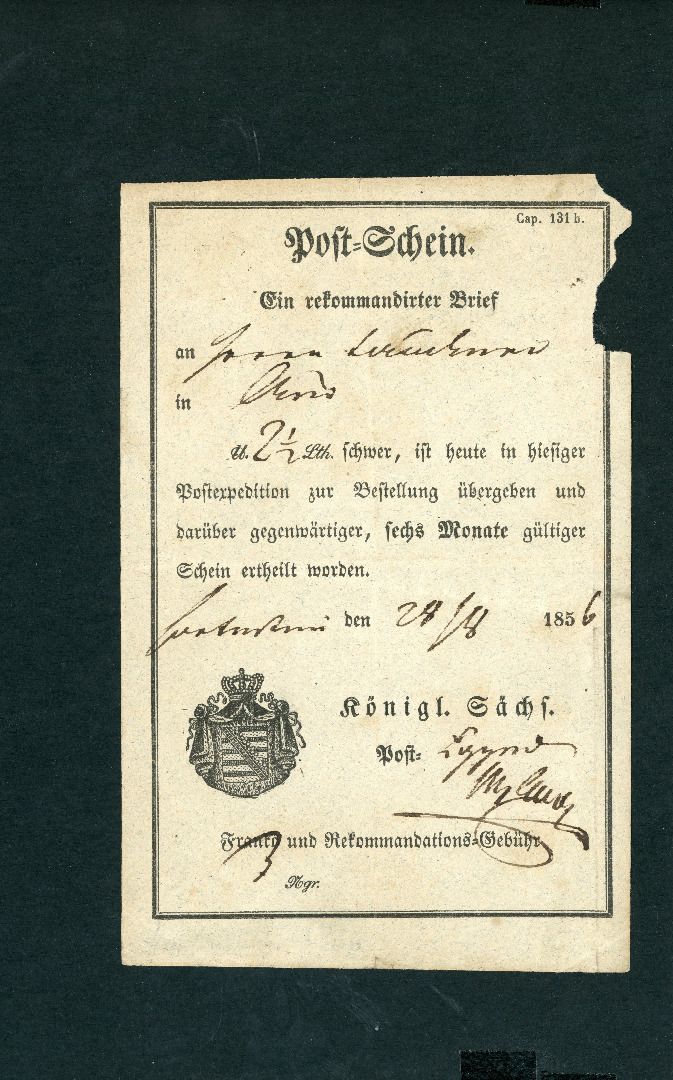 Cap. 131 b.
Post-Schein.
Ein rekommandirter Brief
an Herrn
in
u. 2½ Lth. schwer, ist heute in hiesiger
Postexpedition zur Bestellung übergeben und
darüber gegenwärtiger, sechs Monate gültiger
Schein ertheilt worden.
den 24/8 1856
Königl. Sächs.
Post- Exped
Franco und Rekommandations-Gebühr
3 Ngr.